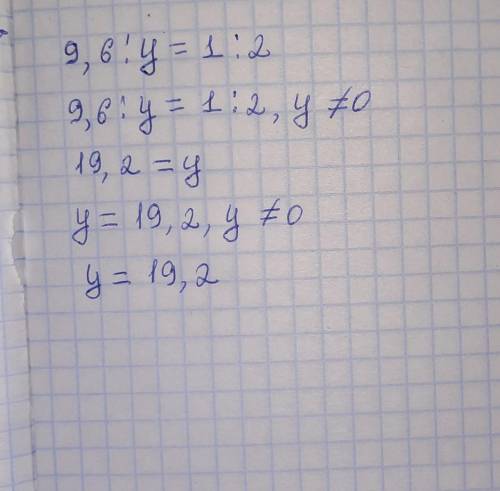 9,6:y=1:2
9,6:y=1:2, y≠0
19,2=y
y=19,2, y≠0
y=19,2